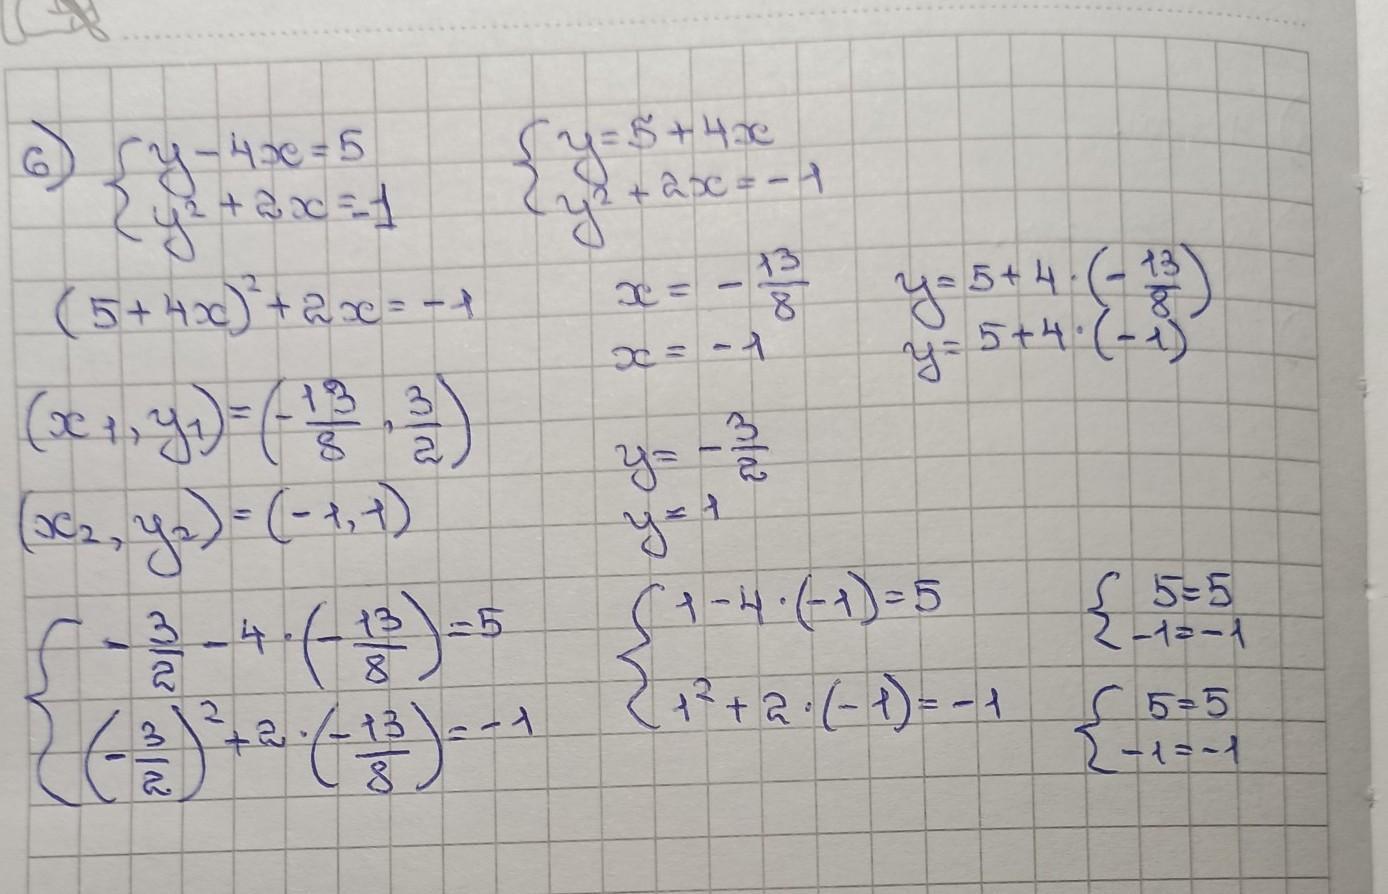 6) { y - 4x = 5
y² + 2x = -1
{ y = 5 + 4x
y² + 2x = -1
(5 + 4x)² + 2x = -1
x = - 13/8
x = -1
y = 5 + 4 · (- 13/8)
y = 5 + 4 · (-1)
(x₁, y₁) = (- 13/8, 3/2)
(x₂, y₂) = (-1, 1)
y = - 3/2
y = 1
{ - 3/2 - 4 · (- 13/8) = 5
(- 3/2)² + 2 · (- 13/8) = -1
{ 1 - 4 · (-1) = 5
1² + 2 · (-1) = -1
{ 5 = 5
-1 = -1
{ 5 = 5
-1 = -1